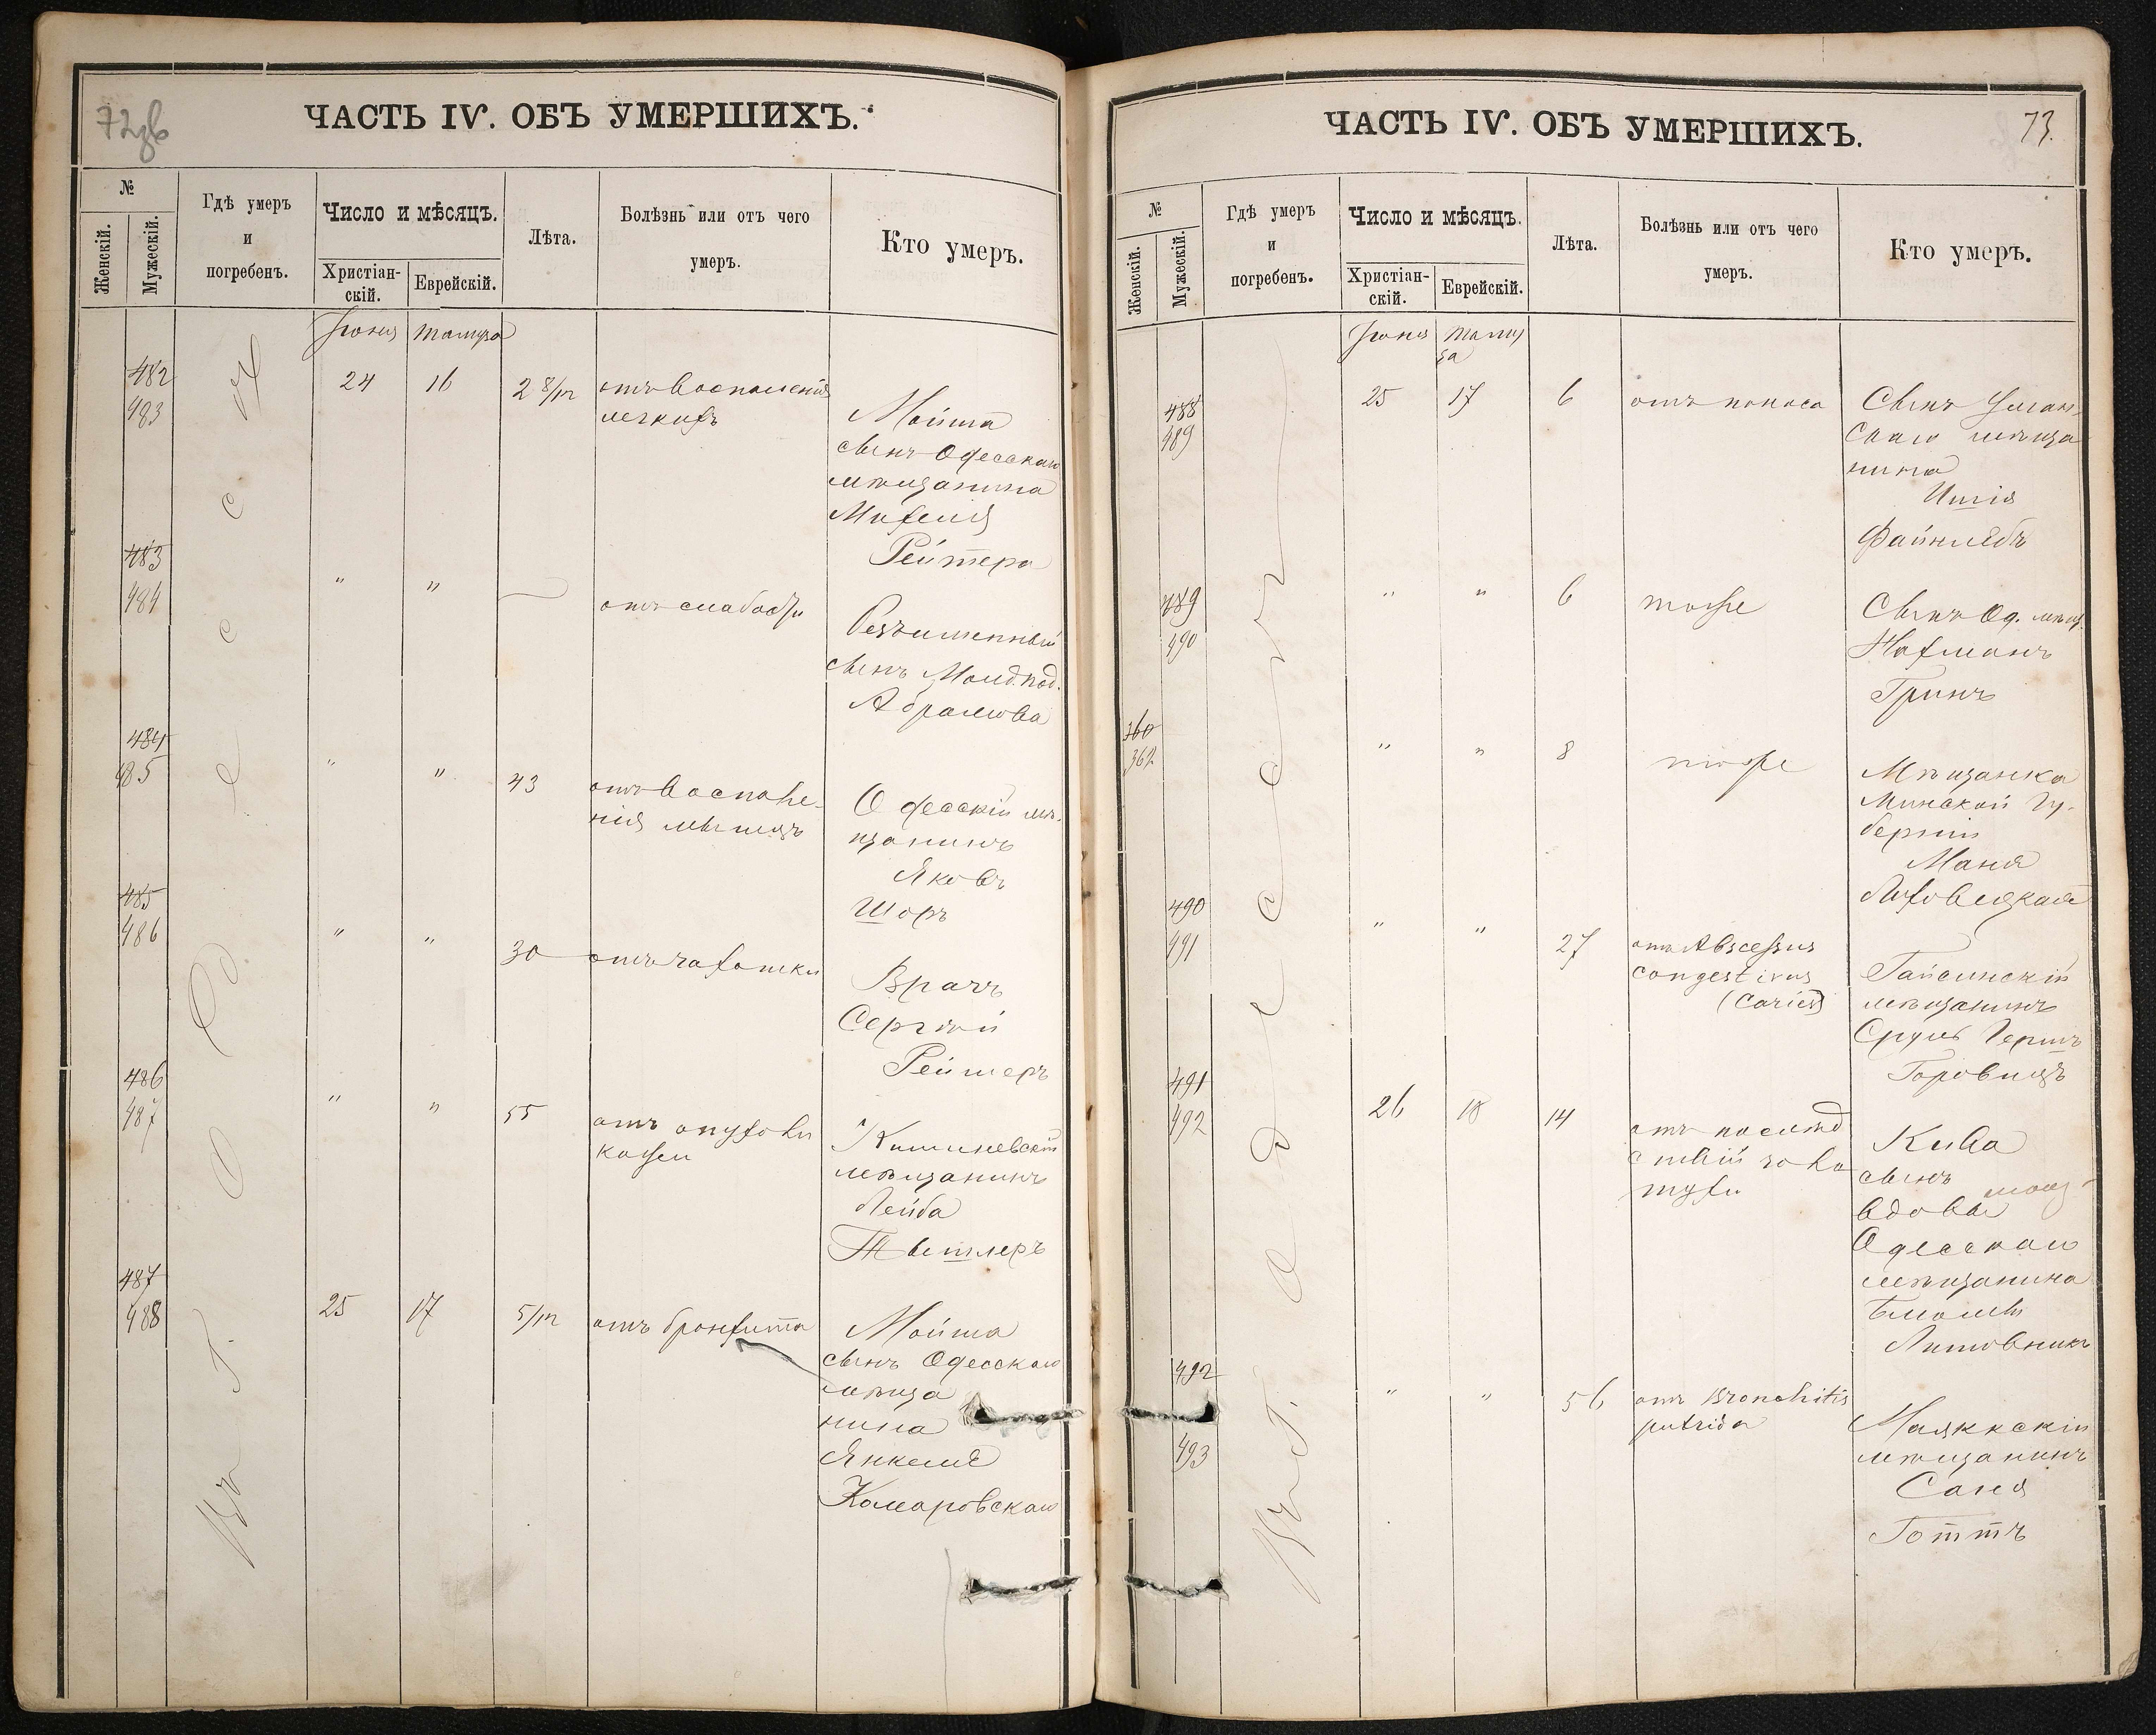 72об
ЧАСТЬ IV. ОБЪ УМЕРШИХЪ.
№
Женскій.
Мужескій.
Гдѣ умеръ
и
погребенъ.
Число и мѣсяцъ.
Христіан-
скій.
Еврейскій.
Лѣта.
Болѣзнь или отъ чего
умеръ.
Кто умеръ.
Въ г. Одессѣ
Іюня Тамуза
482
483
24 16 2 8/12
отъ воспаленія
легкихъ
Мойша
сынъ Одесскаго
мѣщанина
Михеля
Рейтера
483
484
" "
отъ слабости
Безъименный
сынъ Молд. под.
Абрамова
484
485
" " 43
отъ воспале-
нія мышцъ
Одесскій мѣ-
щанинъ
Яковъ
Шоръ
485
486
" " 30
отъ чахотки
Врачъ
Сергѣй
Рейтеръ
486
487
" " 55
отъ опухоли
кожи
Кишиневскій
мѣщанинъ
Лейба
487
488
25 17 5/12
отъ бронхита
Мойша
сынъ Одесскаго
мѣща
нина
Янкеля
Комаровскаго
ЧАСТЬ IV. ОБЪ УМЕРШИХЪ.
73.
№
Женскій.
Мужескій.
Гдѣ умеръ
и
погребенъ.
Число и мѣсяцъ.
Христіан-
скій.
Еврейскій.
Лѣта.
Болѣзнь или отъ чего
умеръ.
Кто умеръ.
Въ г. Одессѣ
Іюня Таму
за
488
489
25 17 6
отъ поноса
Сынъ Уман-
скаго мѣща
нина
Файнлебъ
489
490
" " 6
тоже
Сынъ Од. мѣщ.
Нахманъ
Гринъ
360
362
" " 8
тоже
Мѣщанка
Минской Гу-
берніи
Маня
490
491
" " 27
отъ Abscessus
congestivus
(caries)
Гайсинскій
мѣщанинъ
Сруль Гершъ
Горовицъ
491
492
26 18 14
отъ послѣд
ствій золо
тухи
Кива
сынъ
вдовы
Одесскаго
мѣщанина
Литовникъ
492
493
" " 56
отъ Bronchitis
putrida
Маякскій
мѣщанинъ
Саня
Готтъ